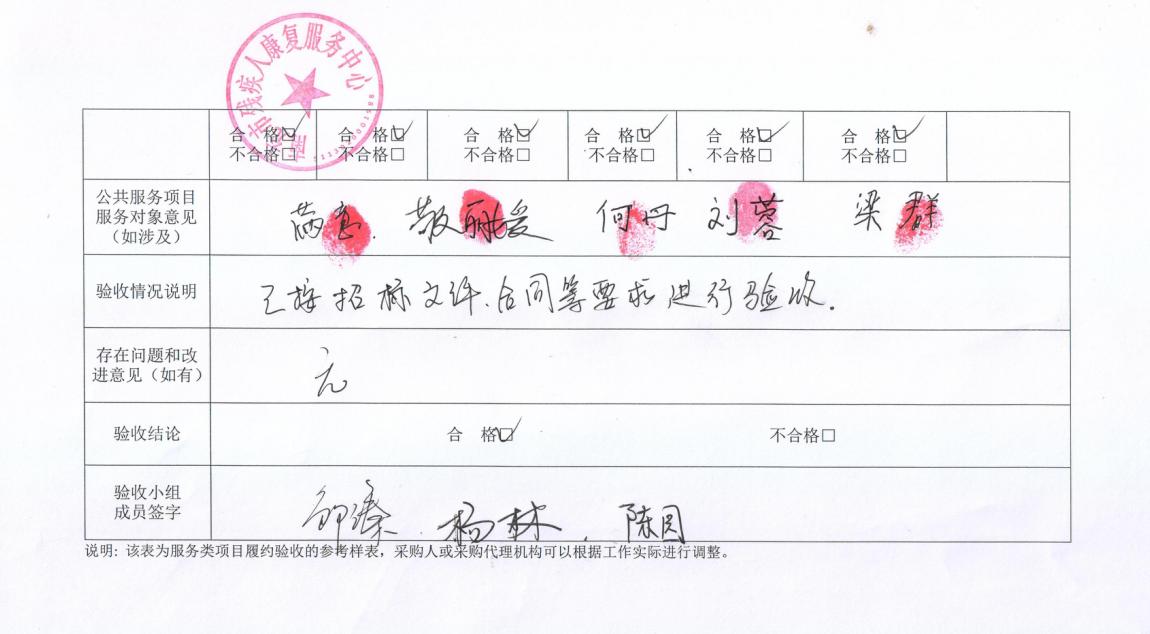 市残疾人康复服务中心
合 格☑ 合 格☑ 合 格☑ 合 格☑ 合 格☑ 合 格☑
不合格□ 不合格□ 不合格□ 不合格□ 不合格□ 不合格□
公共服务项目
服务对象意见
（如涉及）
满意. 敬丽媛 何丹 刘蓉 梁群
验收情况说明
已按招标文件、合同等要求进行验收.
存在问题和改
进意见（如有）
无
验收结论
合 格☑ 不合格□
验收小组
成员签字
杨林 . 陈园
说明: 该表为服务类项目履约验收的参考样表，采购人或采购代理机构可以根据工作实际进行调整。